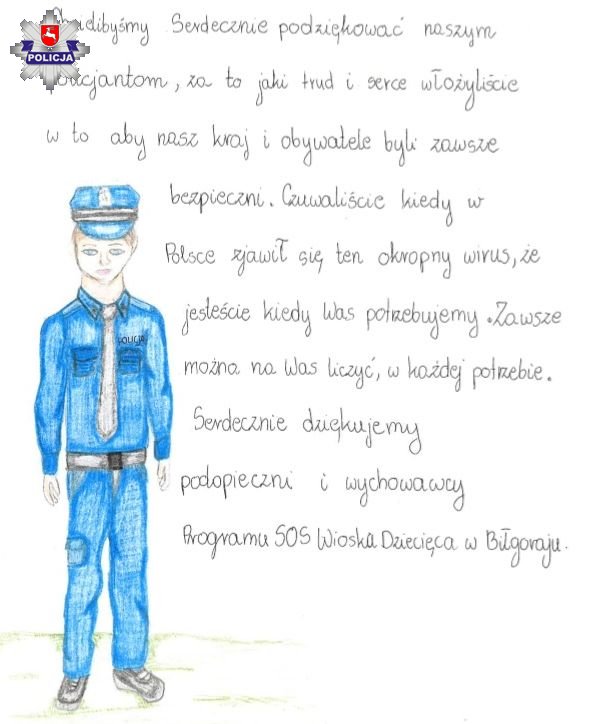 POLICJA
Serdecznie podziękować naszym
policjantom, za to jaki trud i serce włożyliście
w to aby nasz kraj i obywatele byli zawsze
bezpieczni. Czuwaliście kiedy w
Polsce zjawił się ten okropny wirus, że
jesteście kiedy Was potrzebujemy. Zawsze
można na Was liczyć, w każdej potrzebie.
Serdecznie dziękujemy
podopieczni i wychowawcy
Programu SOS Wioska Dziecięca w Biłgoraju.
POLICJA